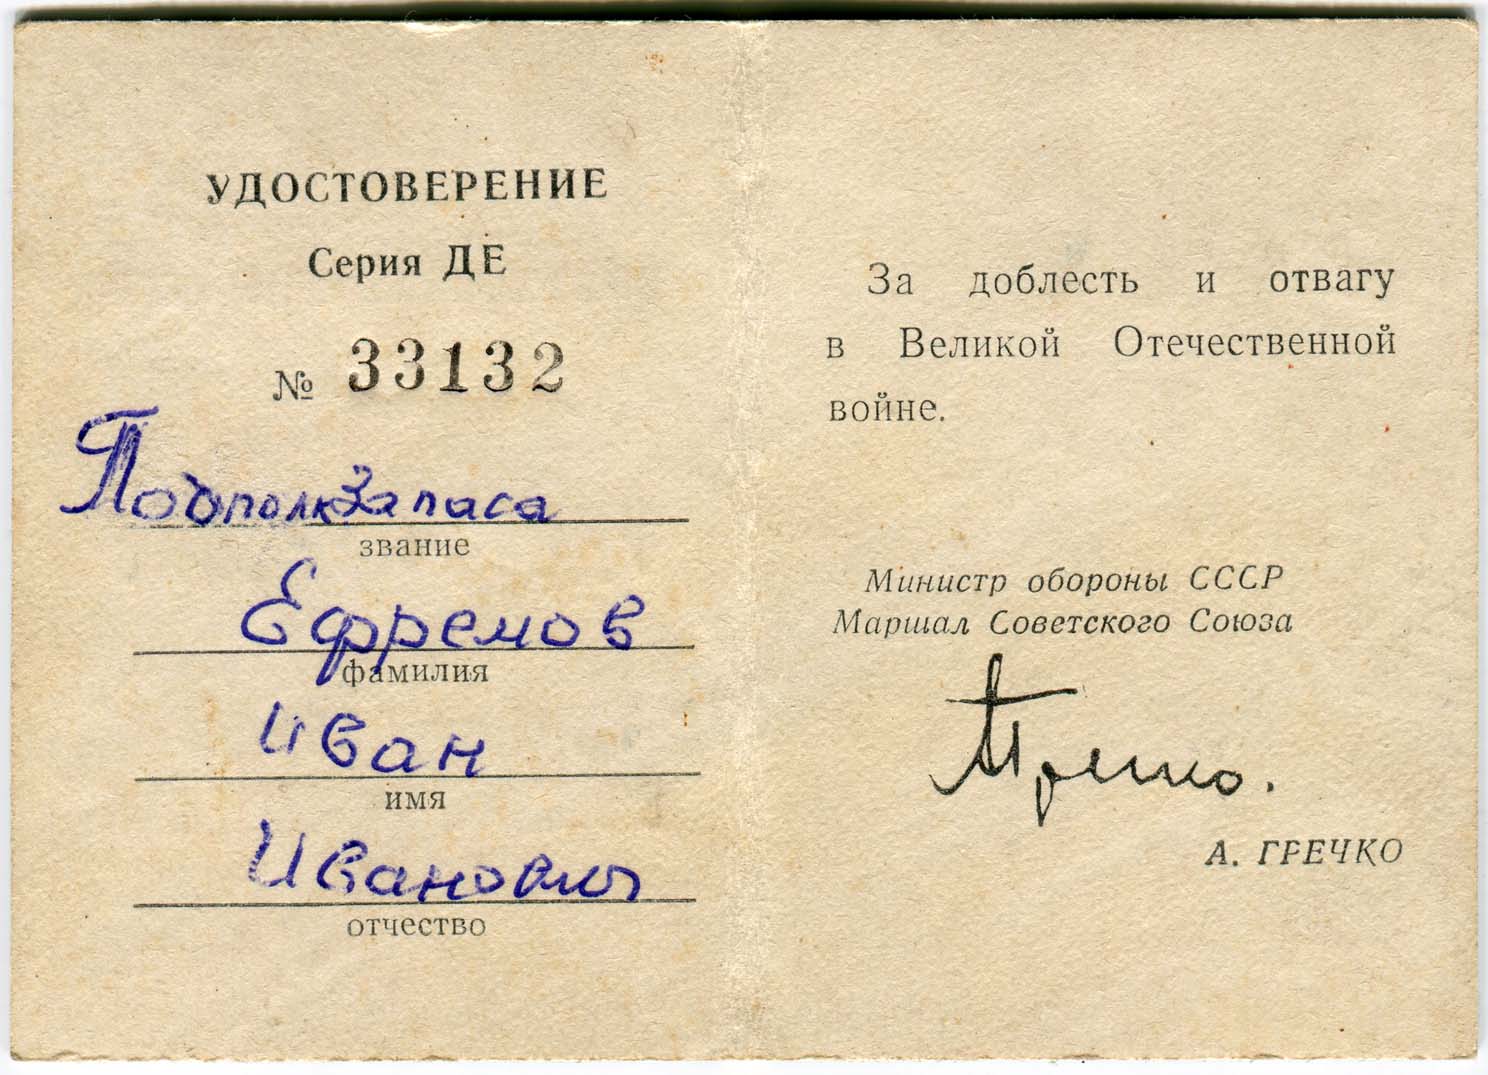 УДОСТОВЕРЕНИЕ
Серия ДЕ
№ 33132
Подполк Запаса
звание
Ефремов
фамилия
Иван
имя
Иванович
отчество
За доблесть и отвагу
в Великой Отечественной
войне.
Министр обороны СССР
Маршал Советского Союза
Гречко.
А. ГРЕЧКО